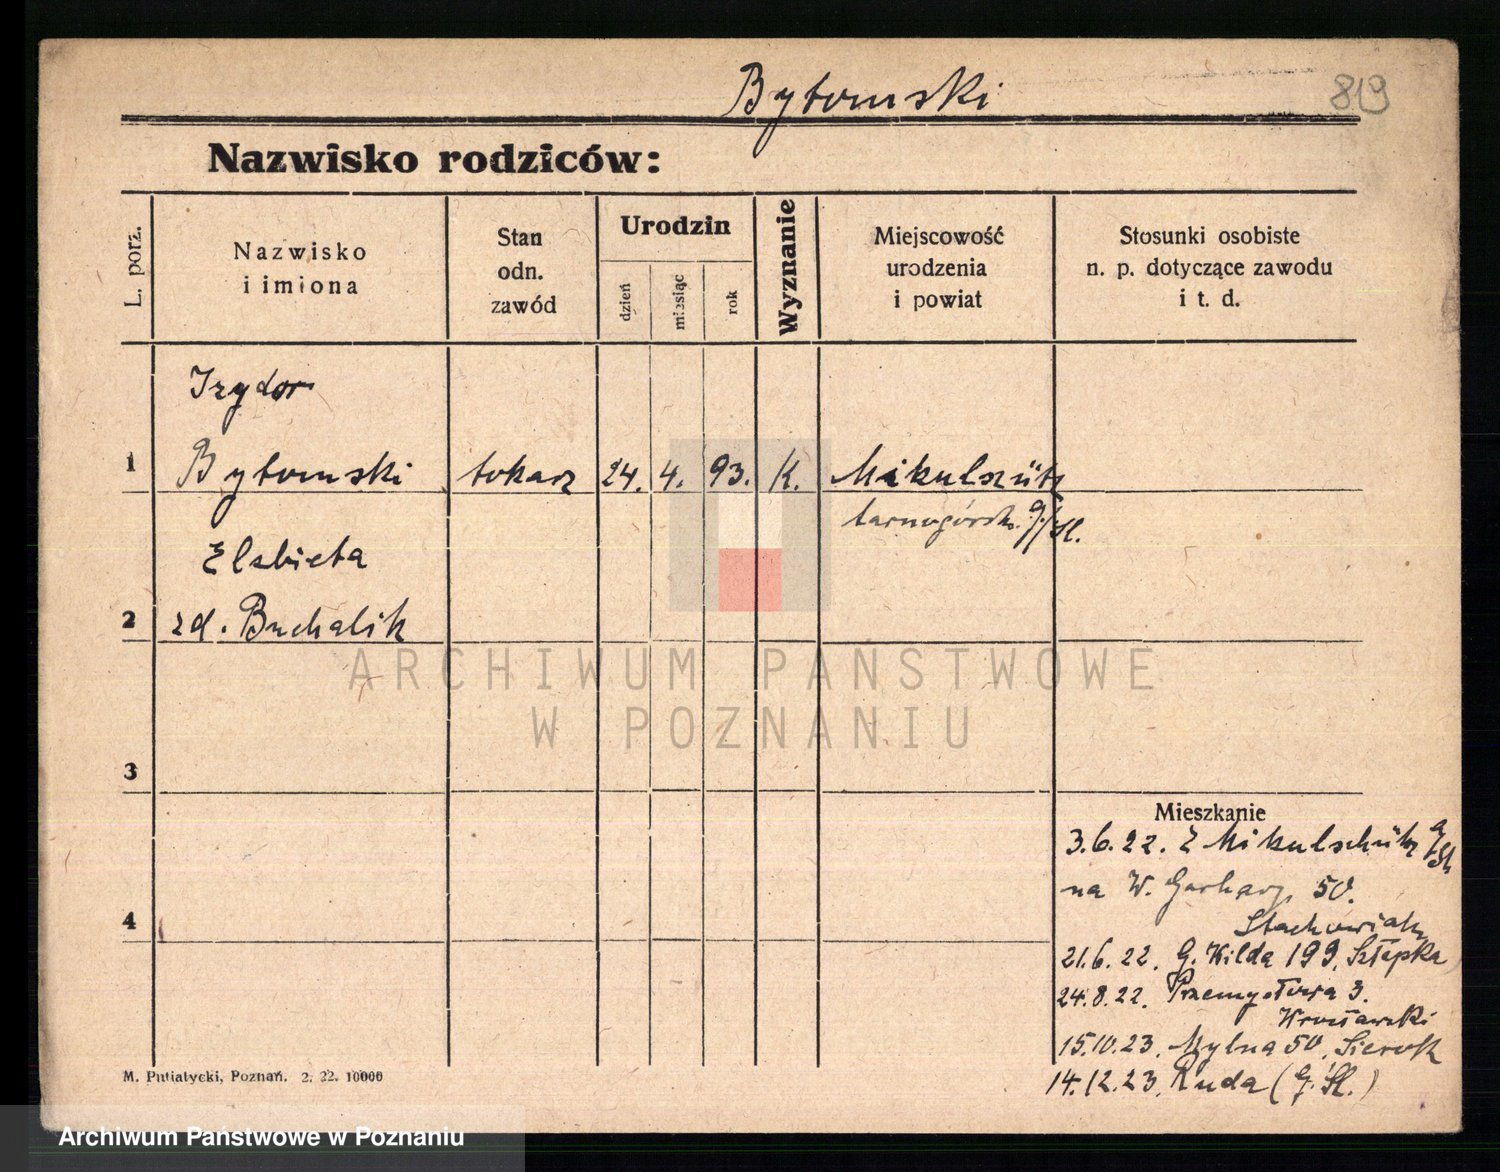 Bytomski
819
Nazwisko rodziców:
L. porz.
Nazwisko
i imiona
Stan
odn.
zawód
Urodzin
dzień
miesiąc
rok
Wyznanie
Miejscowość
urodzenia
i powiat
Stosunki osobiste
n. p. dotyczące zawodu
i t. d.
Izydor
1 Bytomski tokarz 24. 4. 93. K. Mikulszütz
tarnogórsk. G/Sl.
Elzbieta
2 zd. Buchalik
ARCHIWUM PANSTWOWE
W POZNANIU
3
Mieszkanie
3.6.22. Z Mikulschütz G/Sl.
na W. Garbary 50.
4
Stachowiak
21.6.22. G. Wilda 199, Szłapka
24.8.22. Przemysłowa 3.
Wrocławski
15.10.23. Mylna 50,
14.12.23. Ruda (G. Śl.)
M. Putiatycki, Poznań. 2. 22. 10000
Archiwum Państwowe w Poznaniu